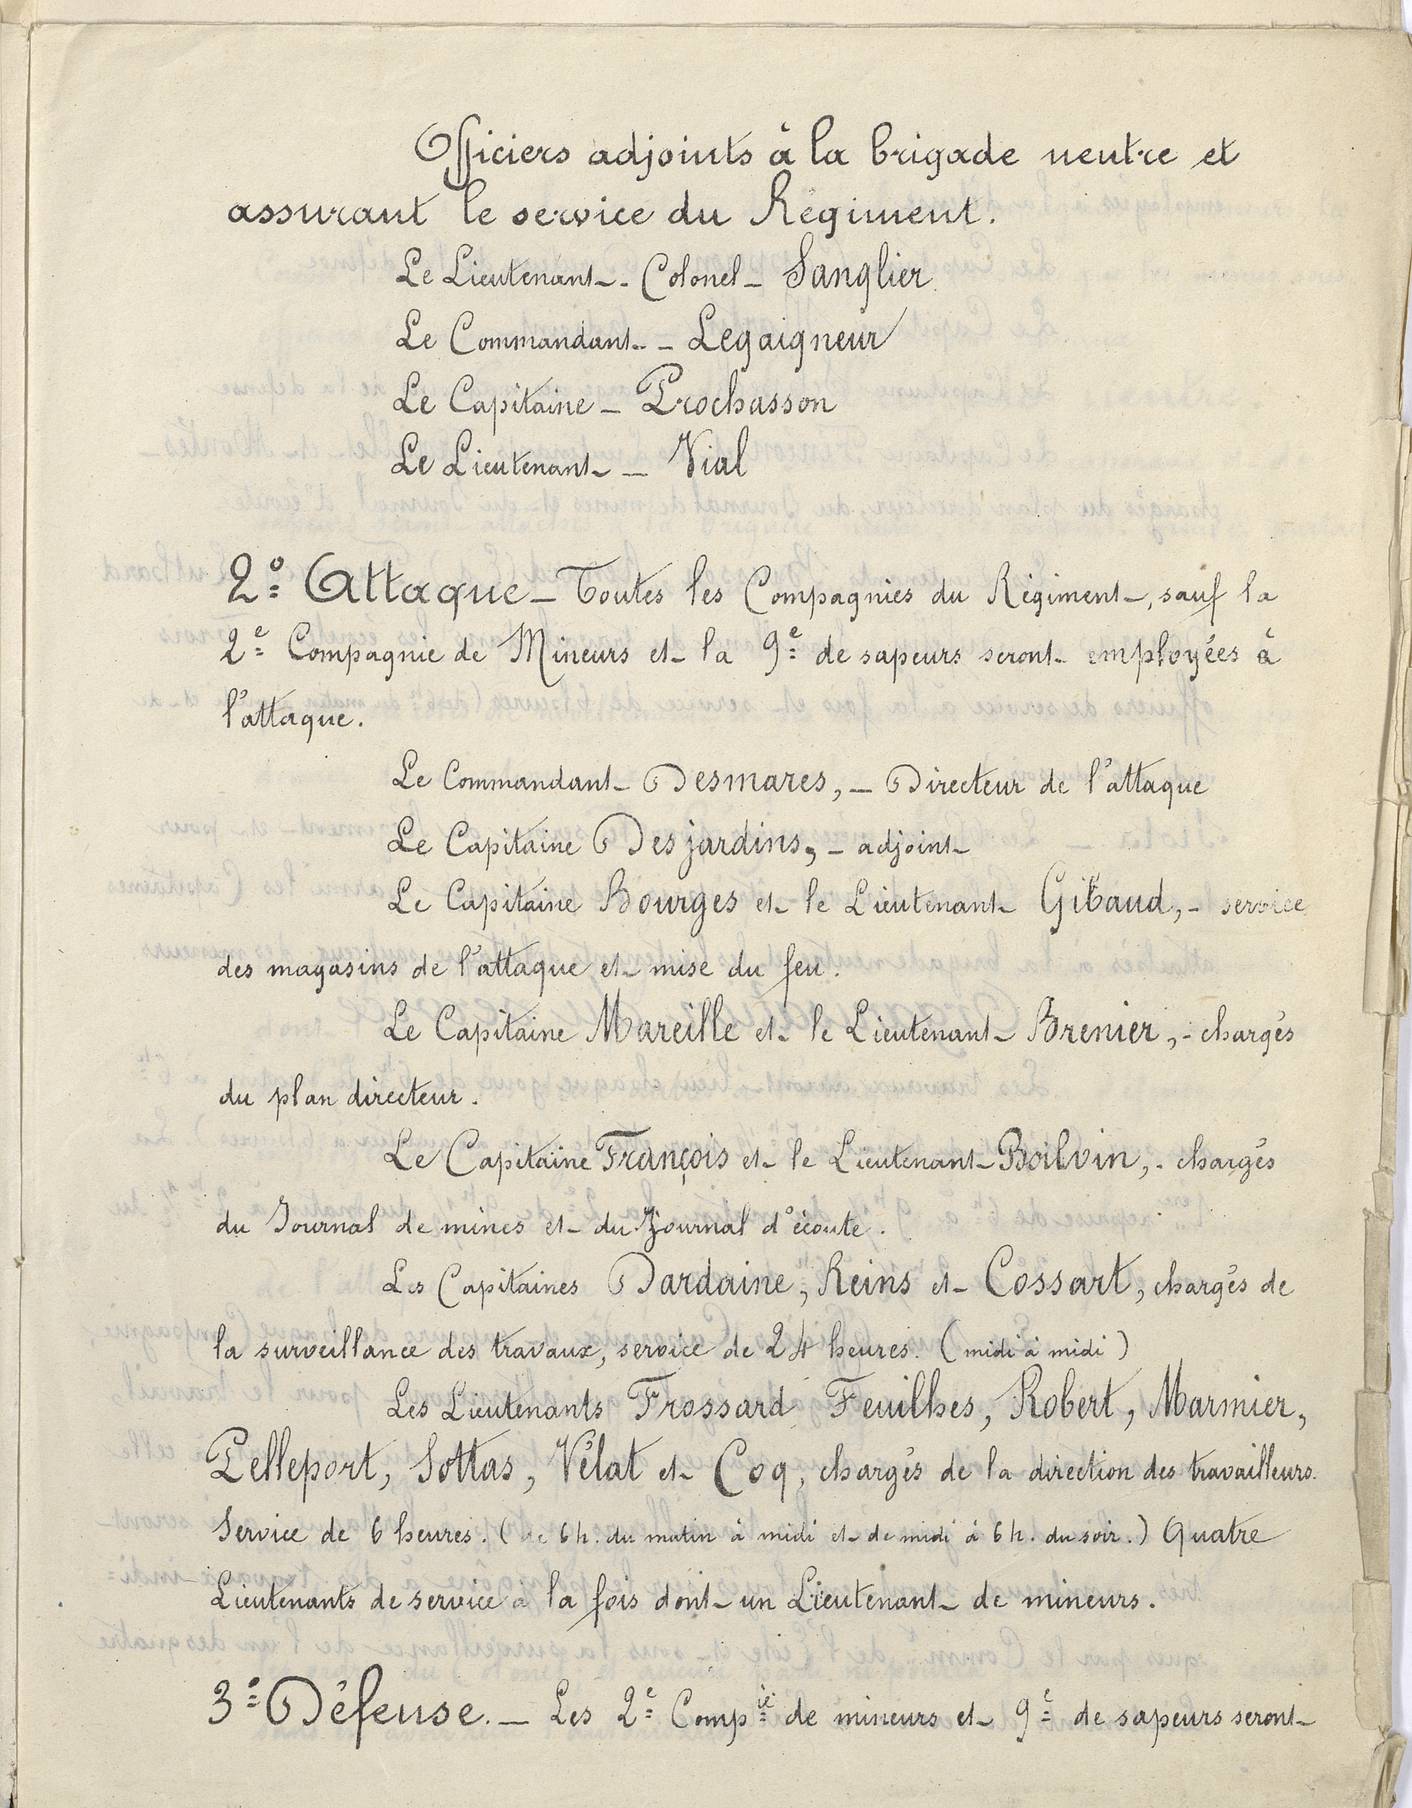 Officiers adjoints à la brigade neutre et
assurant le service du Régiment.
Le Lieutenant-Colonel - Sanglier
Le Commandant - Legaigneur
Le Capitaine - Prochasson
Le Lieutenant - Vial
2° Attaque - Toutes les Compagnies du Régiment, sauf la
2e Compagnie de Mineurs et la 9e de sapeurs seront employées à
l'attaque.
Le Commandant Desmares, - Directeur de l'attaque
Le Capitaine Desjardins, - adjoint
Le Capitaine Bourges et le Lieutenant Gibaud, - service
des magasins de l'attaque et mise du feu.
Le Capitaine Mareille et le Lieutenant Brenier, - chargés
du plan directeur.
Le Capitaine François et le Lieutenant Boilvin, - chargés
du Journal de mines et du Journal d'écoute.
Les Capitaines Dardaine, Reins et Cossart, chargés de
la surveillance des travaux, service de 24 heures. (midi à midi)
Les Lieutenants Frossard Feuilhes, Robert, Marmier,
Pelleport, Sottas, Vélat et Coq, chargés de la direction des travailleurs.
Service de 6 heures. (de 6 h. du matin à midi et de midi à 6 h. du soir.) Quatre
Lieutenants de service à la fois dont un Lieutenant de mineurs.
3° Défense. - Les 2e Compie de mineurs et 9e de sapeurs seront